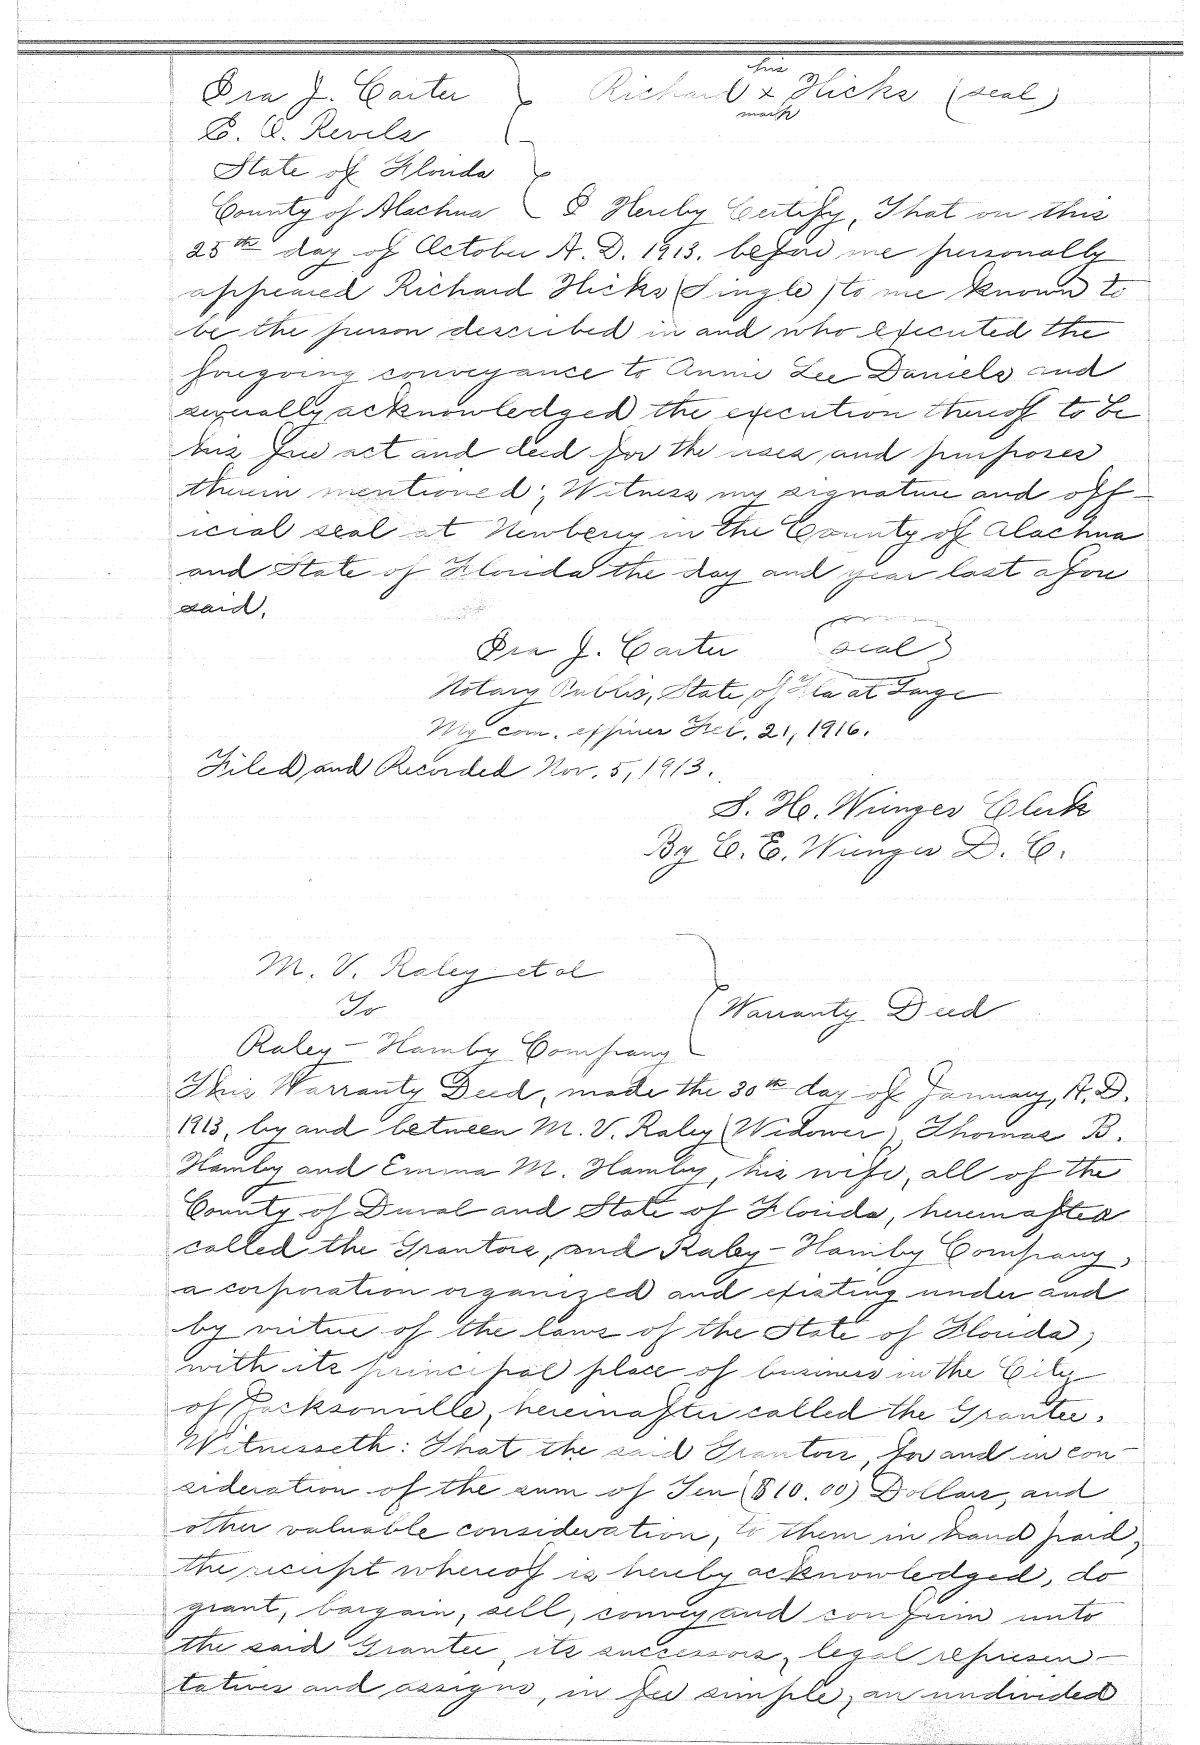 his
Ira J. Carter Richard x Hicks (seal)
mark
E. A. Revels
State of Florida
County of Alachua I Hereby Certify, That on this
25th day of October A. D. 1913. before me personally
appeared Richard Hicks (Single) to me known to
be the person described in and who executed the
foregoing conveyance to Annie Lee Daniels and
severally acknowledged the execution thereof to be
his free act and deed for the uses and purposes
therein mentioned; Witness my signature and off-
icial seal at Newberry in the County of Alachua
and State of Florida the day and year last afore
said.
Ira J. Carter (seal)
Notary Public, State of Fla at Large
My com. expires Feb. 21, 1916.
Filed and Recorded Nov. 5, 1913.
S. H. Wienges Clerk
By C. E. Wienges D. C.
M. V. Raley et al
To
Warranty Deed
Raley-Hamby Company
This Warranty Deed, made the 30th day of January, A.D.
1913, by and between M. V. Raley (Widower), Thomas B.
Hamby and Emma M. Hamby, his wife, all of the
County of Duval and State of Florida, hereinafter
called the Grantors, and Raley-Hamby Company,
a corporation organized and existing under and
by virtue of the laws of the State of Florida,
with its principal place of business in the City
of Jacksonville, hereinafter called the Grantee.
Witnesseth: That the said Grantors, for and in con-
sideration of the sum of Ten ($10.00) Dollars, and
other valuable consideration, to them in hand paid,
the receipt whereof is hereby acknowledged, do
grant, bargain, sell, convey and confirm unto
the said Grantee, its successors, legal represen-
tatives and assigns, in fee simple, an undivided